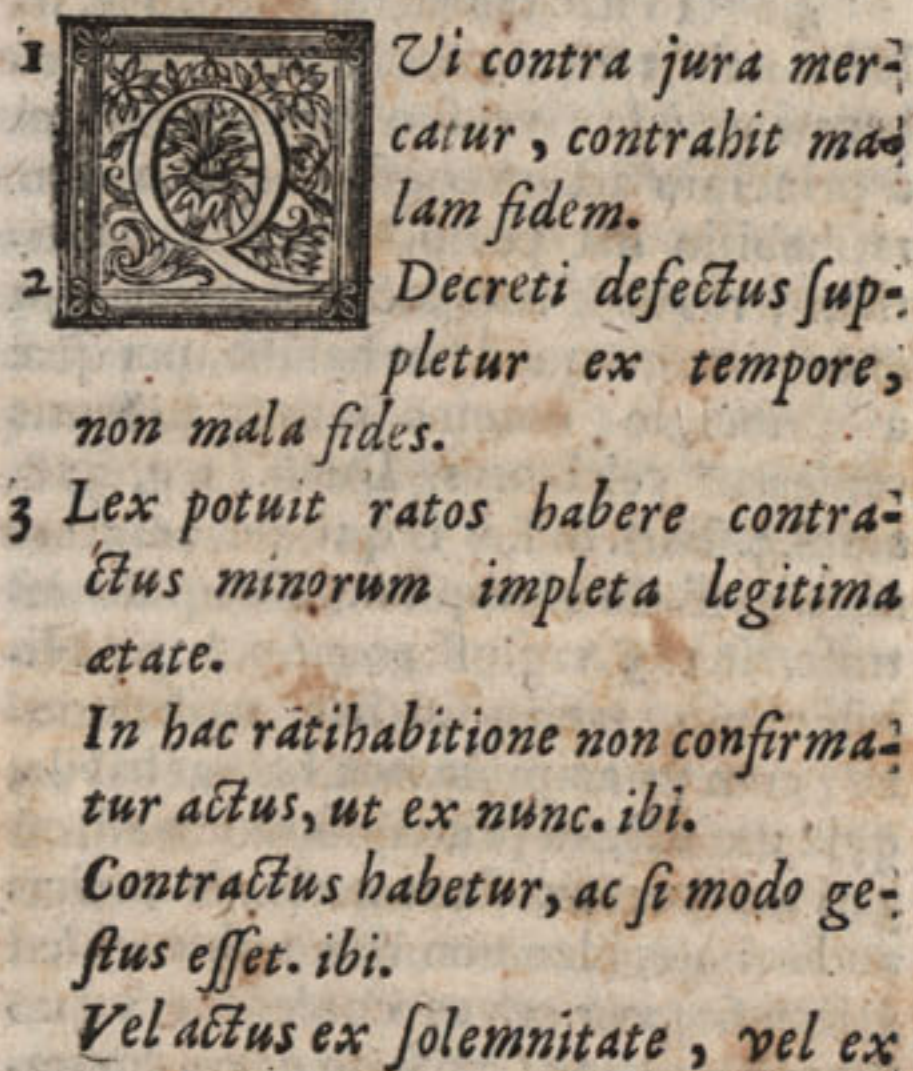 1 QUi contra jura mer-
catur, contrahit ma-
lam fidem.
2 Decreti defectus ſup-
pletur ex tempore,
non mala fides.
3 Lex potuit ratos habere contra-
ctus minorum impleta legitima
ætate.
In hac ratihabitione non confirma-
tur actus, ut ex nunc. ibi.
Contractus habetur, ac ſi modo ge-
ſtus eſſet. ibi.
Vel actus ex ſolemnitate, vel ex